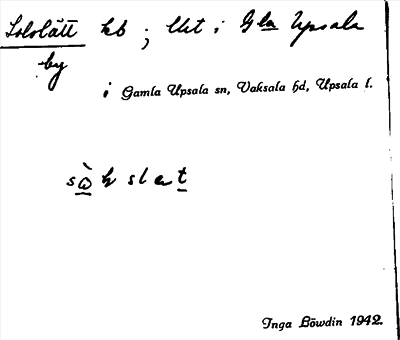 Sololätt hb ; Utt i Gla Upsala
by
i Gamla Upsala sn, Vaksala hd, Upsala l.
Inga Löwdin 1942.